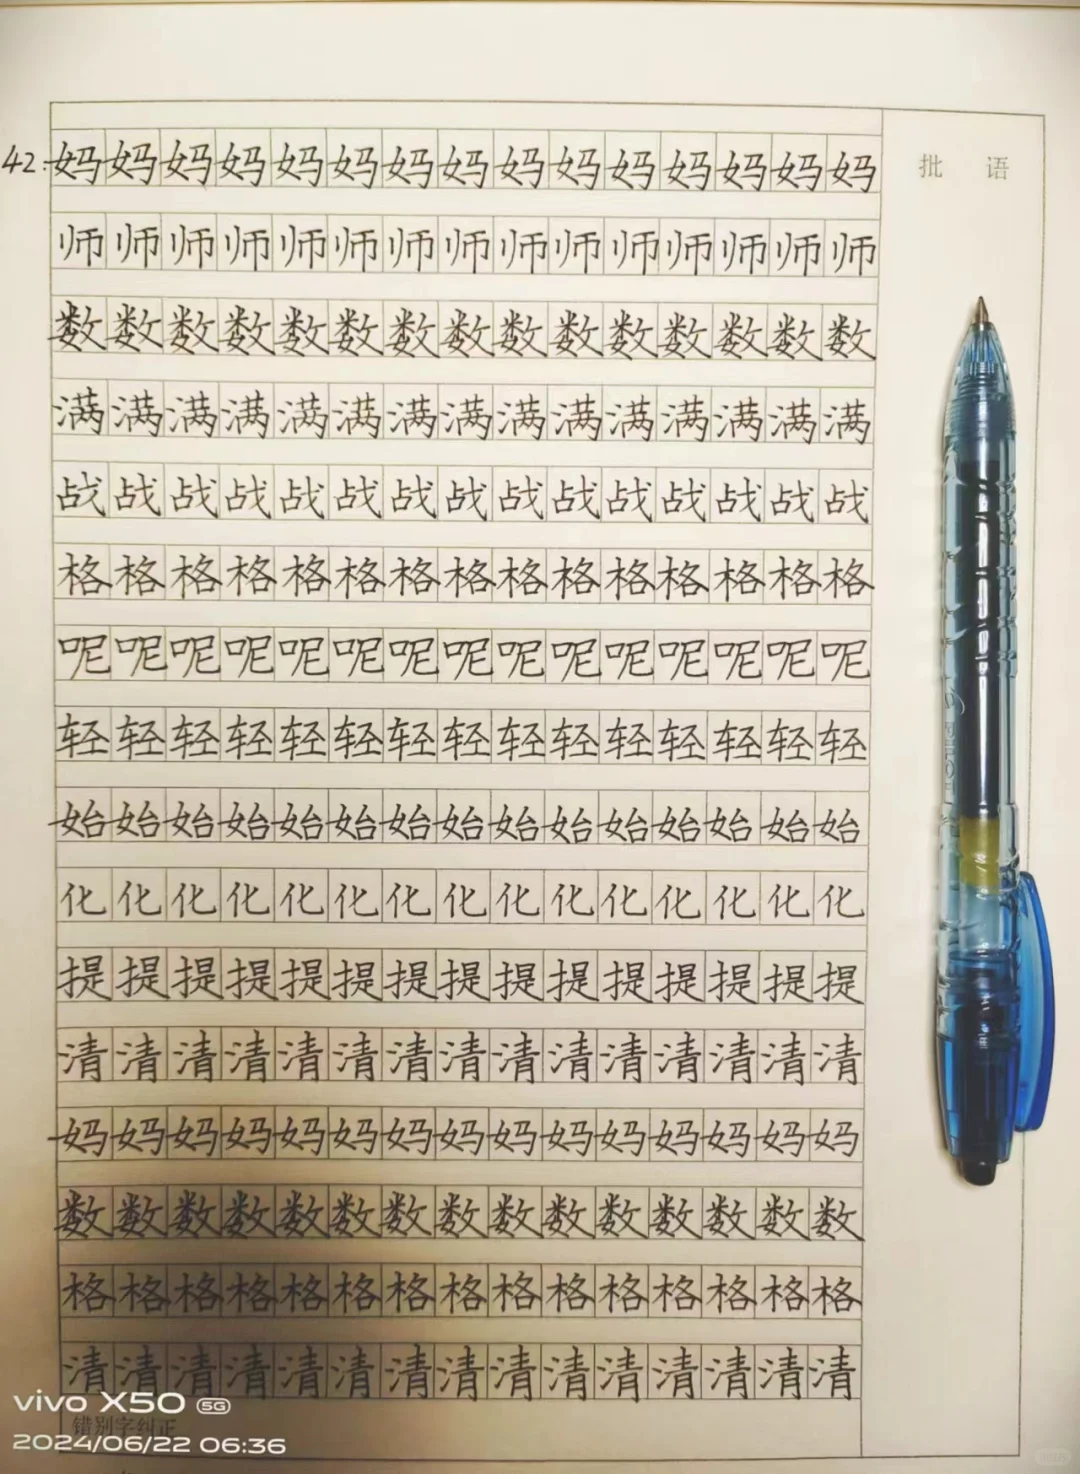 42:妈妈妈妈妈妈妈妈妈妈妈妈妈妈妈
批 语
师师师师师师师师师师师师师师师
数数数数数数数数数数数数数数数
满满满满满满满满满满满满满满满
战战战战战战战战战战战战战战战
格格格格格格格格格格格格格格格
呢呢呢呢呢呢呢呢呢呢呢呢呢呢呢
轻轻轻轻轻轻轻轻轻轻轻轻轻轻轻
始始始始始始始始始始始始始始始
化化化化化化化化化化化化化化化
提提提提提提提提提提提提提提提
清清清清清清清清清清清清清清清
妈妈妈妈妈妈妈妈妈妈妈妈妈妈妈
数数数数数数数数数数数数数数数
格格格格格格格格格格格格格格格
清清清清清清清清清清清清清清清
vivo X50 5G
错别字纠正
2024/06/22 06:36
PILOT